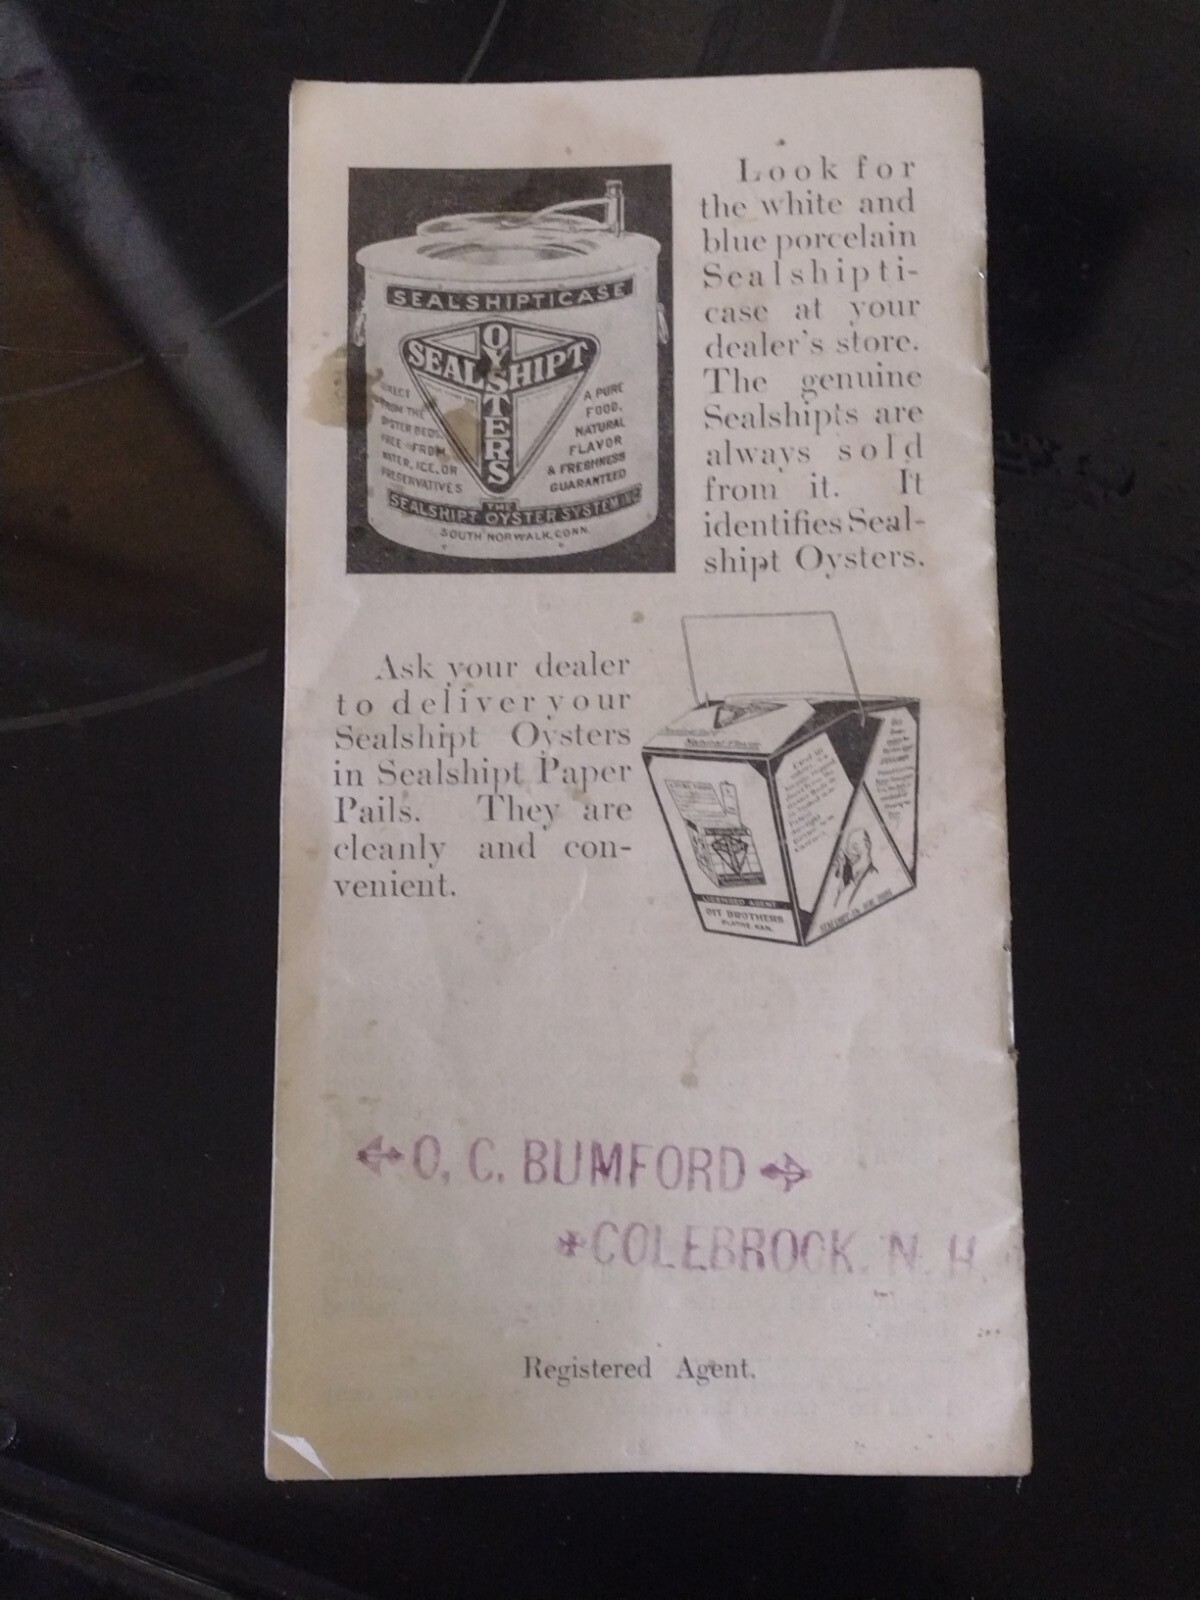 SEALSHIPTICASE
OYSTERS
SEALSHIPT
DIRECT
FROM THE
OYSTER BEDS.
FREE FROM
WATER, ICE, OR
PRESERVATIVES
A PURE
FOOD,
NATURAL
FLAVOR
& FRESHNESS
GUARANTEED
THE
SEALSHIPT OYSTER SYSTEM INC
SOUTH NORWALK, CONN.
Look for
the white and
blue porcelain
Sealshipti-
case at your
dealer's store.
The genuine
Sealshipts are
always sold
from it. It
identifies Seal-
shipt Oysters.
Ask your dealer
to deliver your
Sealshipt Oysters
in Sealshipt Paper
Pails. They are
cleanly and con-
venient.
Natural Flavor
LICENSED AGENT
OTT BROTHERS
O. C. BUMFORD
COLEBROOK, N. H.
Registered Agent.